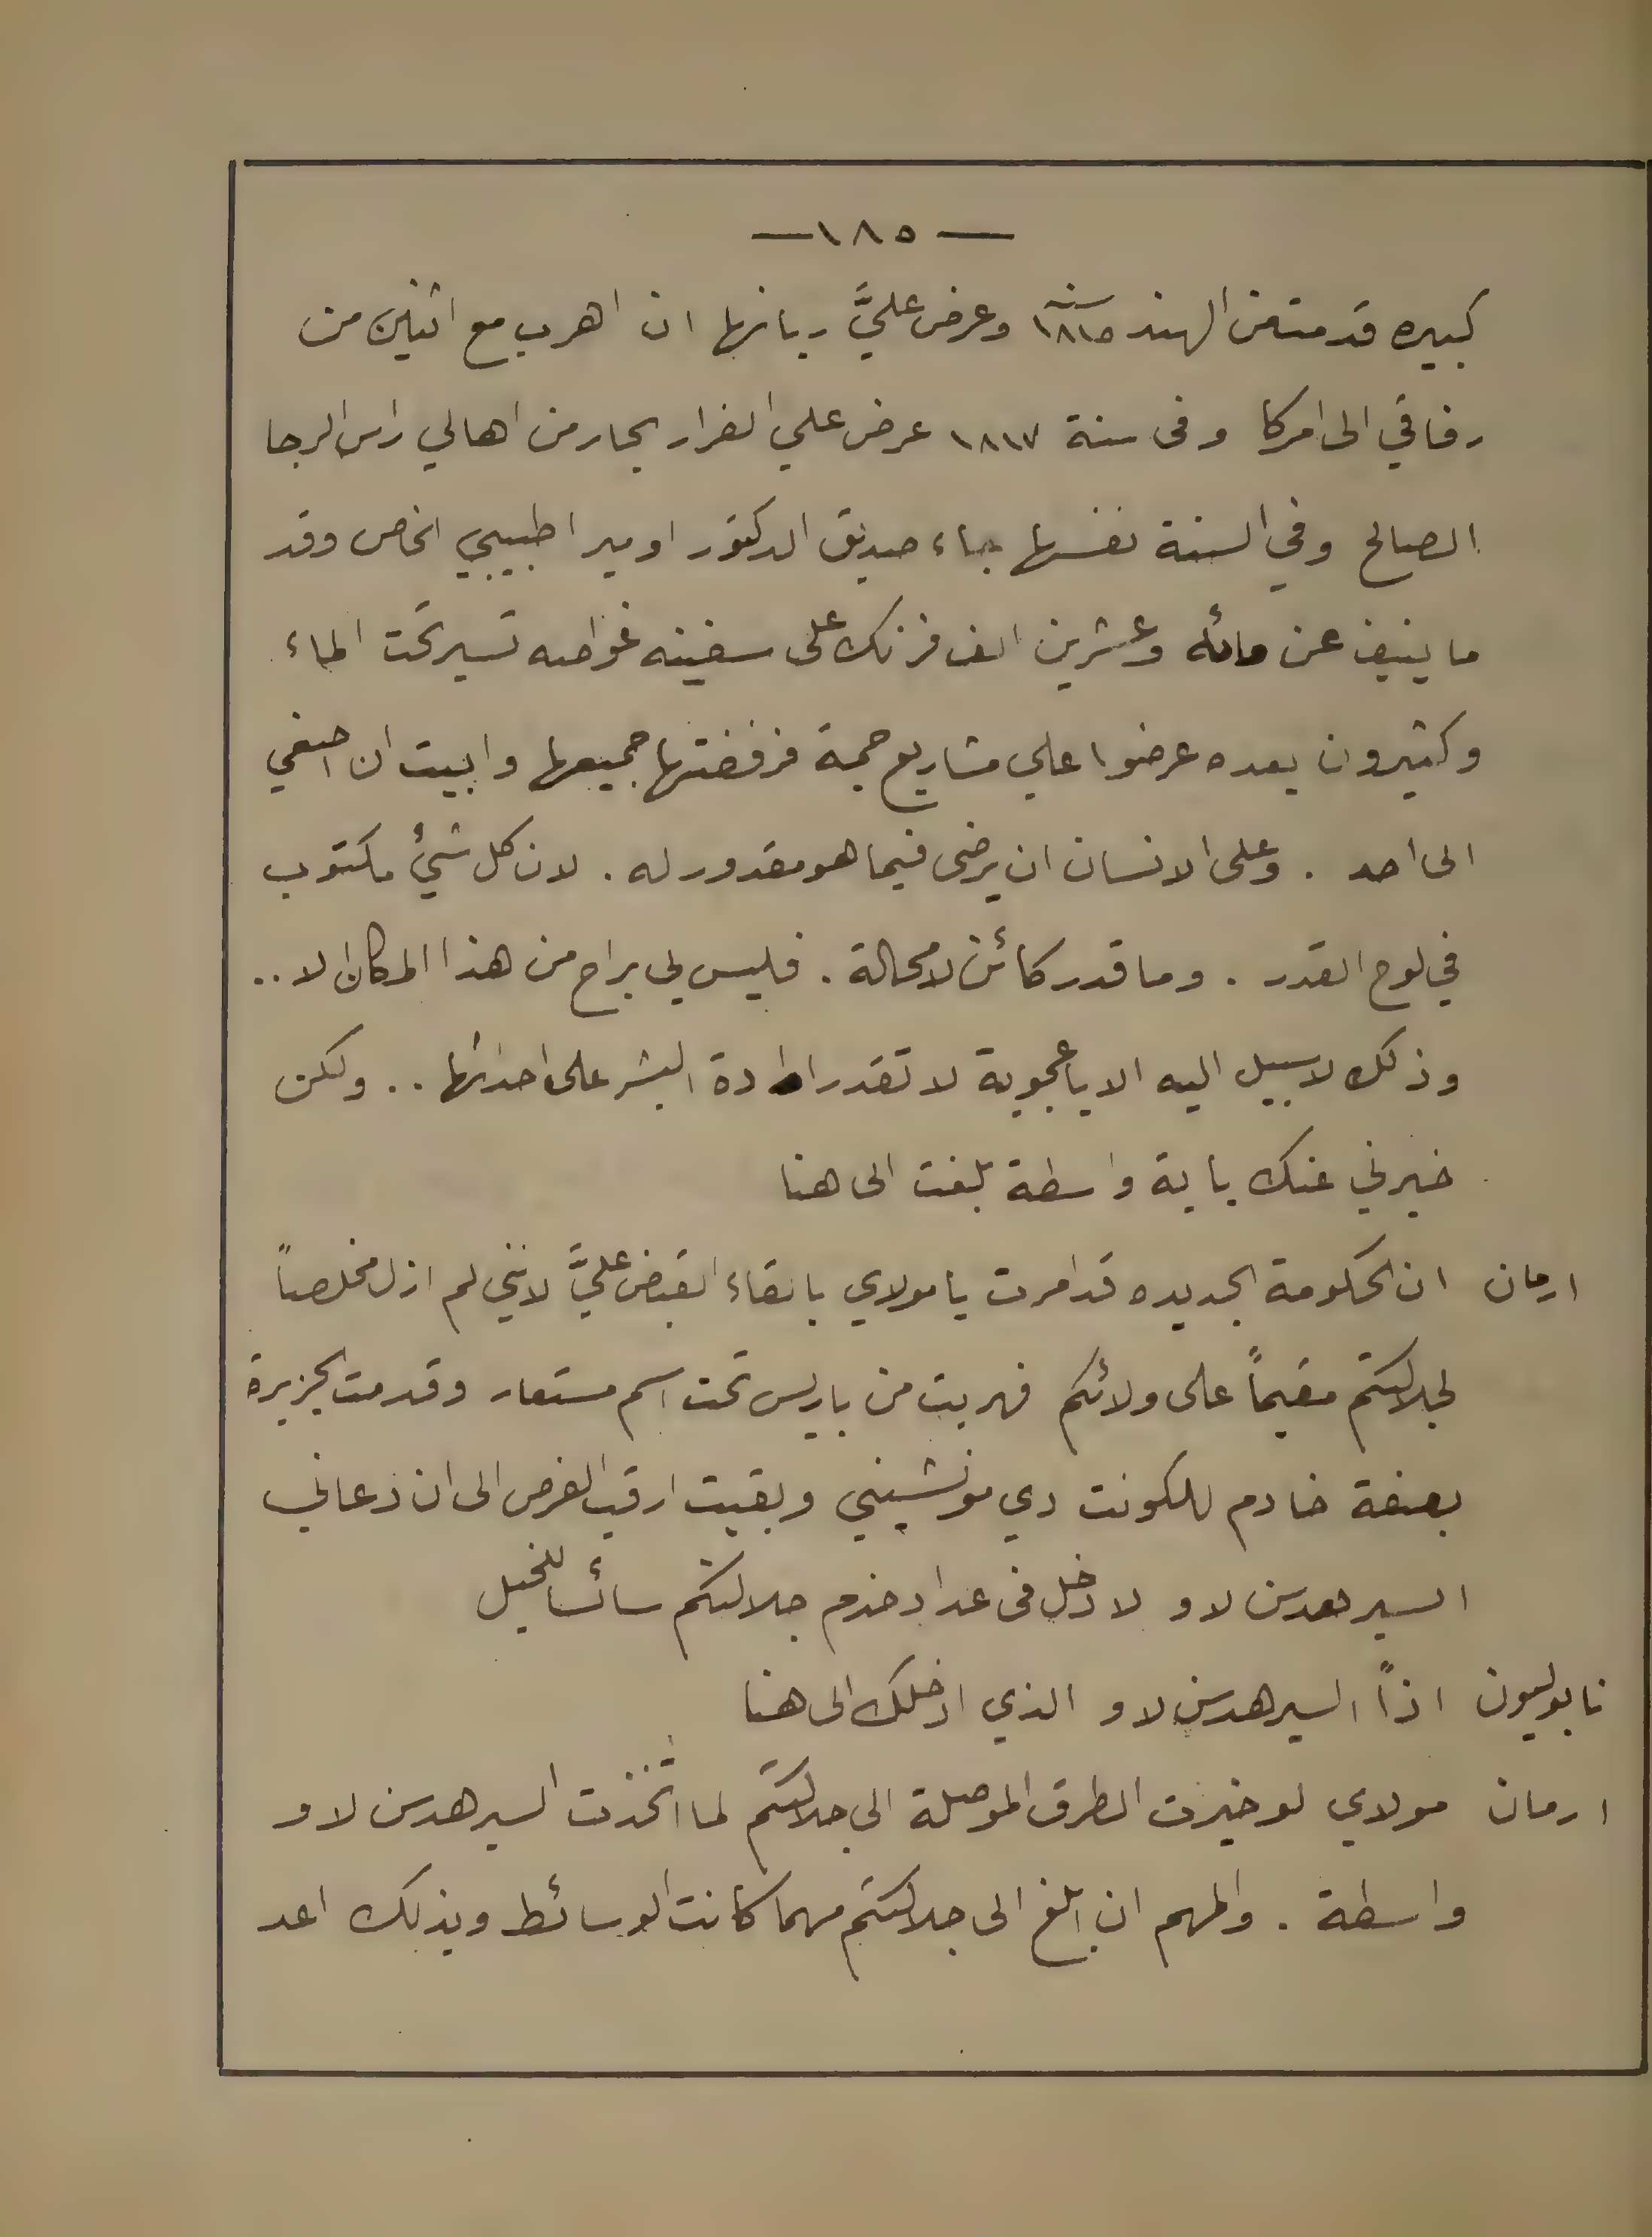 — ١٨٥ —
كبيره قدمت من الهند سنة ١٨١٥ وعرض عليَّ ربانها ان اهرب مع اثنين من
رفاقي الى امركا وفى سنة ١٨١٧ عرض علي الفرار بحار من اهالي راس الرجا
الصالح وفي السنة نفسها جاء صديق الدكتور اوميرا طبيبي الخاص وقد
ما ينيف عن مائه وعشرين الف فرنك على سفينه غواصه تسير تحت الماء
وكثيرون بعده عرضوا علي مشاريع جمة فرفضتها جميعها وابيت ان اصغي
الى احد . وعلى الانسان ان يرضى فيما هو مقدور له . لان كل شيئ مكتوب
في لوح القدر . وما قدر كائن لا محالة . فليس لي براح من هذا المكان الا ..
وذلك لا سبيل اليه الا باعجوبة لا تقدر ارادة البشر على احداثها .. ولكن
خبرني عنك باية واسطة بلغت الى هنا
ارمان ان الحكومة الجديده قد امرت يا مولاي بالقاء القبض عليَّ لانني لم ازل مخلصاً
لجلالتكم مقيماً على ولائكم فهربت من باريس تحت اسم مستعار وقدمت الجزيرة
بصفة خادم للكونت دي مونشيني وبقيت ارقب الفرص الى ان دعاني
السير هدسن لاو لادخل فى عداد خدم جلالتكم سائسا للخيل
نابوليون اذاً السير هدسن لاو الذي ادخلك الى هنا
ارمان مولاي لو خيرت الطرق الموصلة الى جلالتكم لما اتخذت السير هدسن لاو
واسطة . والمهم ان ابلغ الى جلالتكم مهما كانت الوسائط وبذلك اعد